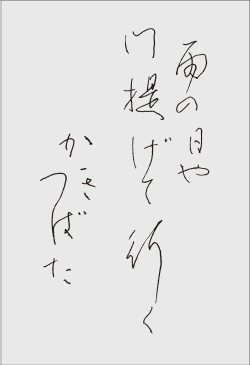 雨の日や
門提げて行く
かきつばた